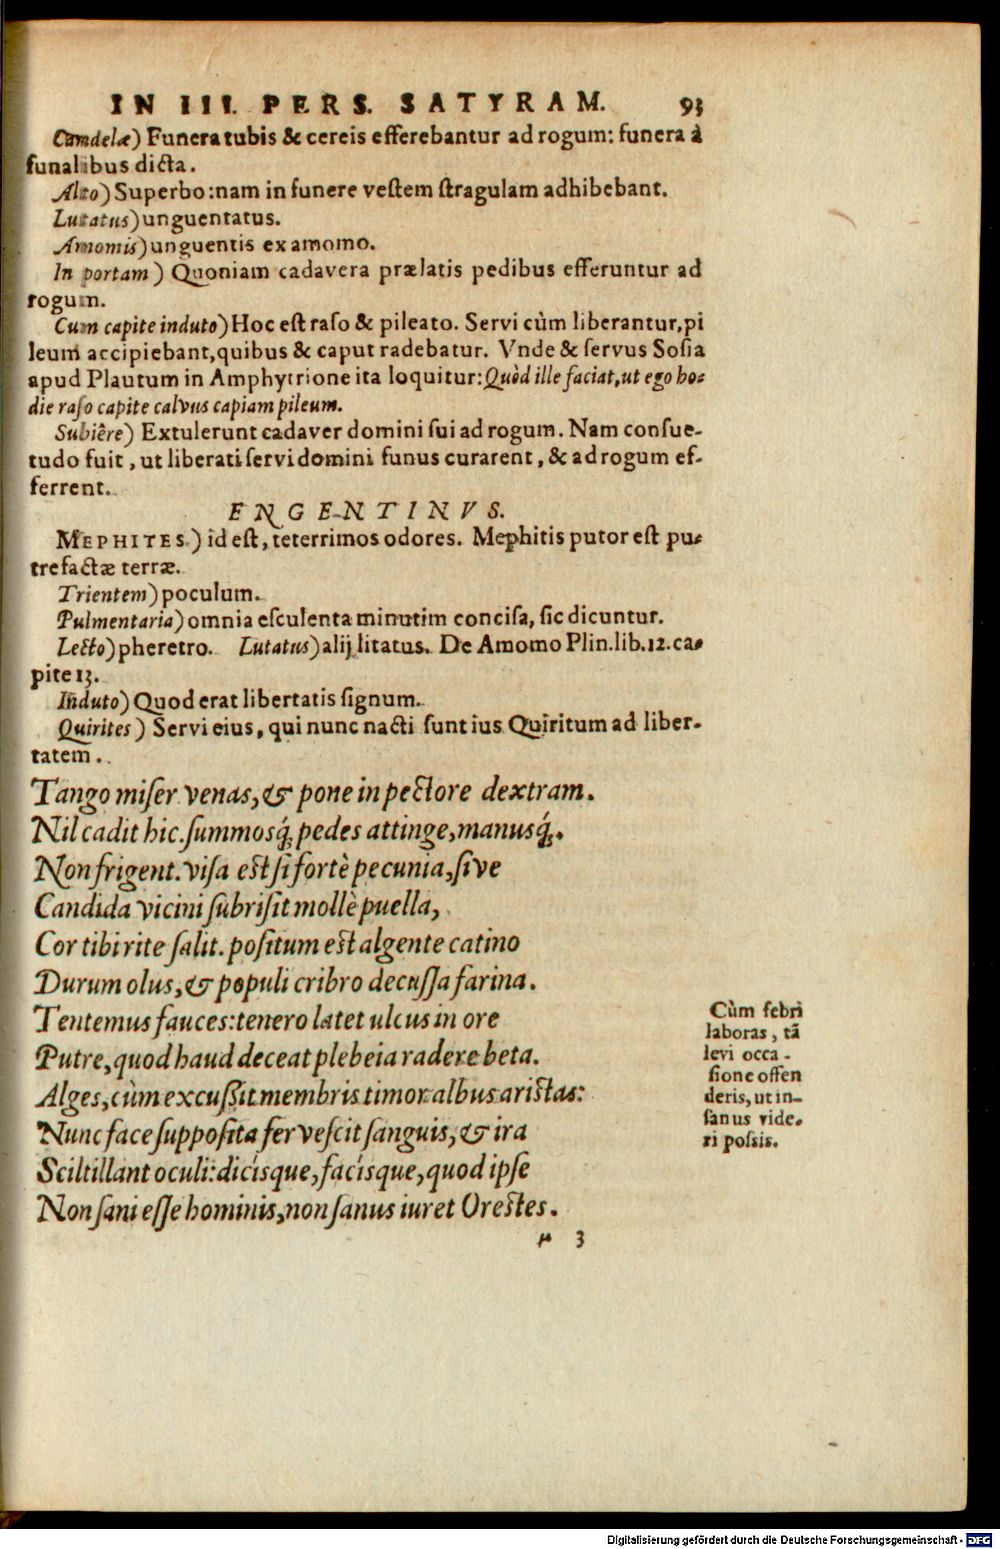 IN III. PERS. SATYRAM. 93
Candelæ) Funera tubis & cereis efferebantur ad rogum: funera à
funalibus dicta.
Alto) Superbo: nam in funere vestem stragulam adhibebant.
Lutatus) unguentatus.
Amomis) unguentis ex amomo.
In portam) Quoniam cadavera prælatis pedibus efferuntur ad
rogum.
Cum capite induto) Hoc est raso & pileato. Servi cùm liberantur, pi
leum accipiebant, quibus & caput radebatur. Vnde & servus Sosia
apud Plautum in Amphytrione ita loquitur: Quòd ille faciat, ut ego ho-
die raso capite calvus capiam pileum.
Subiêre) Extulerunt cadaver domini sui ad rogum. Nam consue-
tudo fuit, ut liberati servi domini funus curarent, & ad rogum ef-
ferrent.
ENGENTINVS.
MEPHITES) id est, teterrimos odores. Mephitis putor est pu-
trefactæ terræ.
Trientem) poculum.
Pulmentaria) omnia esculenta minutim concisa, sic dicuntur.
Lecto) pheretro. Lutatus) alij litatus. De Amomo Plin. lib. 12. ca-
pite 13.
Induto) Quod erat libertatis signum.
Quirites) Servi eius, qui nunc nacti sunt ius Quiritum ad liber-
tatem.
Tango miser venas, & pone in pectore dextram.
Nil cadit hic. summosq́; pedes attinge, manusq́;.
Non frigent. visa est si fortè pecunia, sive
Candida vicini subrisit mollè puella,
Cor tibi rite salit. positum est algente catino
Durum olus, & populi cribro decussa farina.
Tentemus fauces: tenero latet ulcus in ore
Putre, quod haud deceat plebeia radere beta.
Alges, cùm excussit membris timor albus aristas:
Nunc face supposita fervescit sanguis, & ira
Sciltillant oculi: dicisque, facisque, quod ipse
Non sani esse hominis, non sanus iuret Orestes.
Cùm febri
laboras, tã
levi occa-
sione offen
deris, ut in-
sanus vide-
ri possis.
3
Digitalisierung gefördert durch die Deutsche Forschungsgemeinschaft - DFG